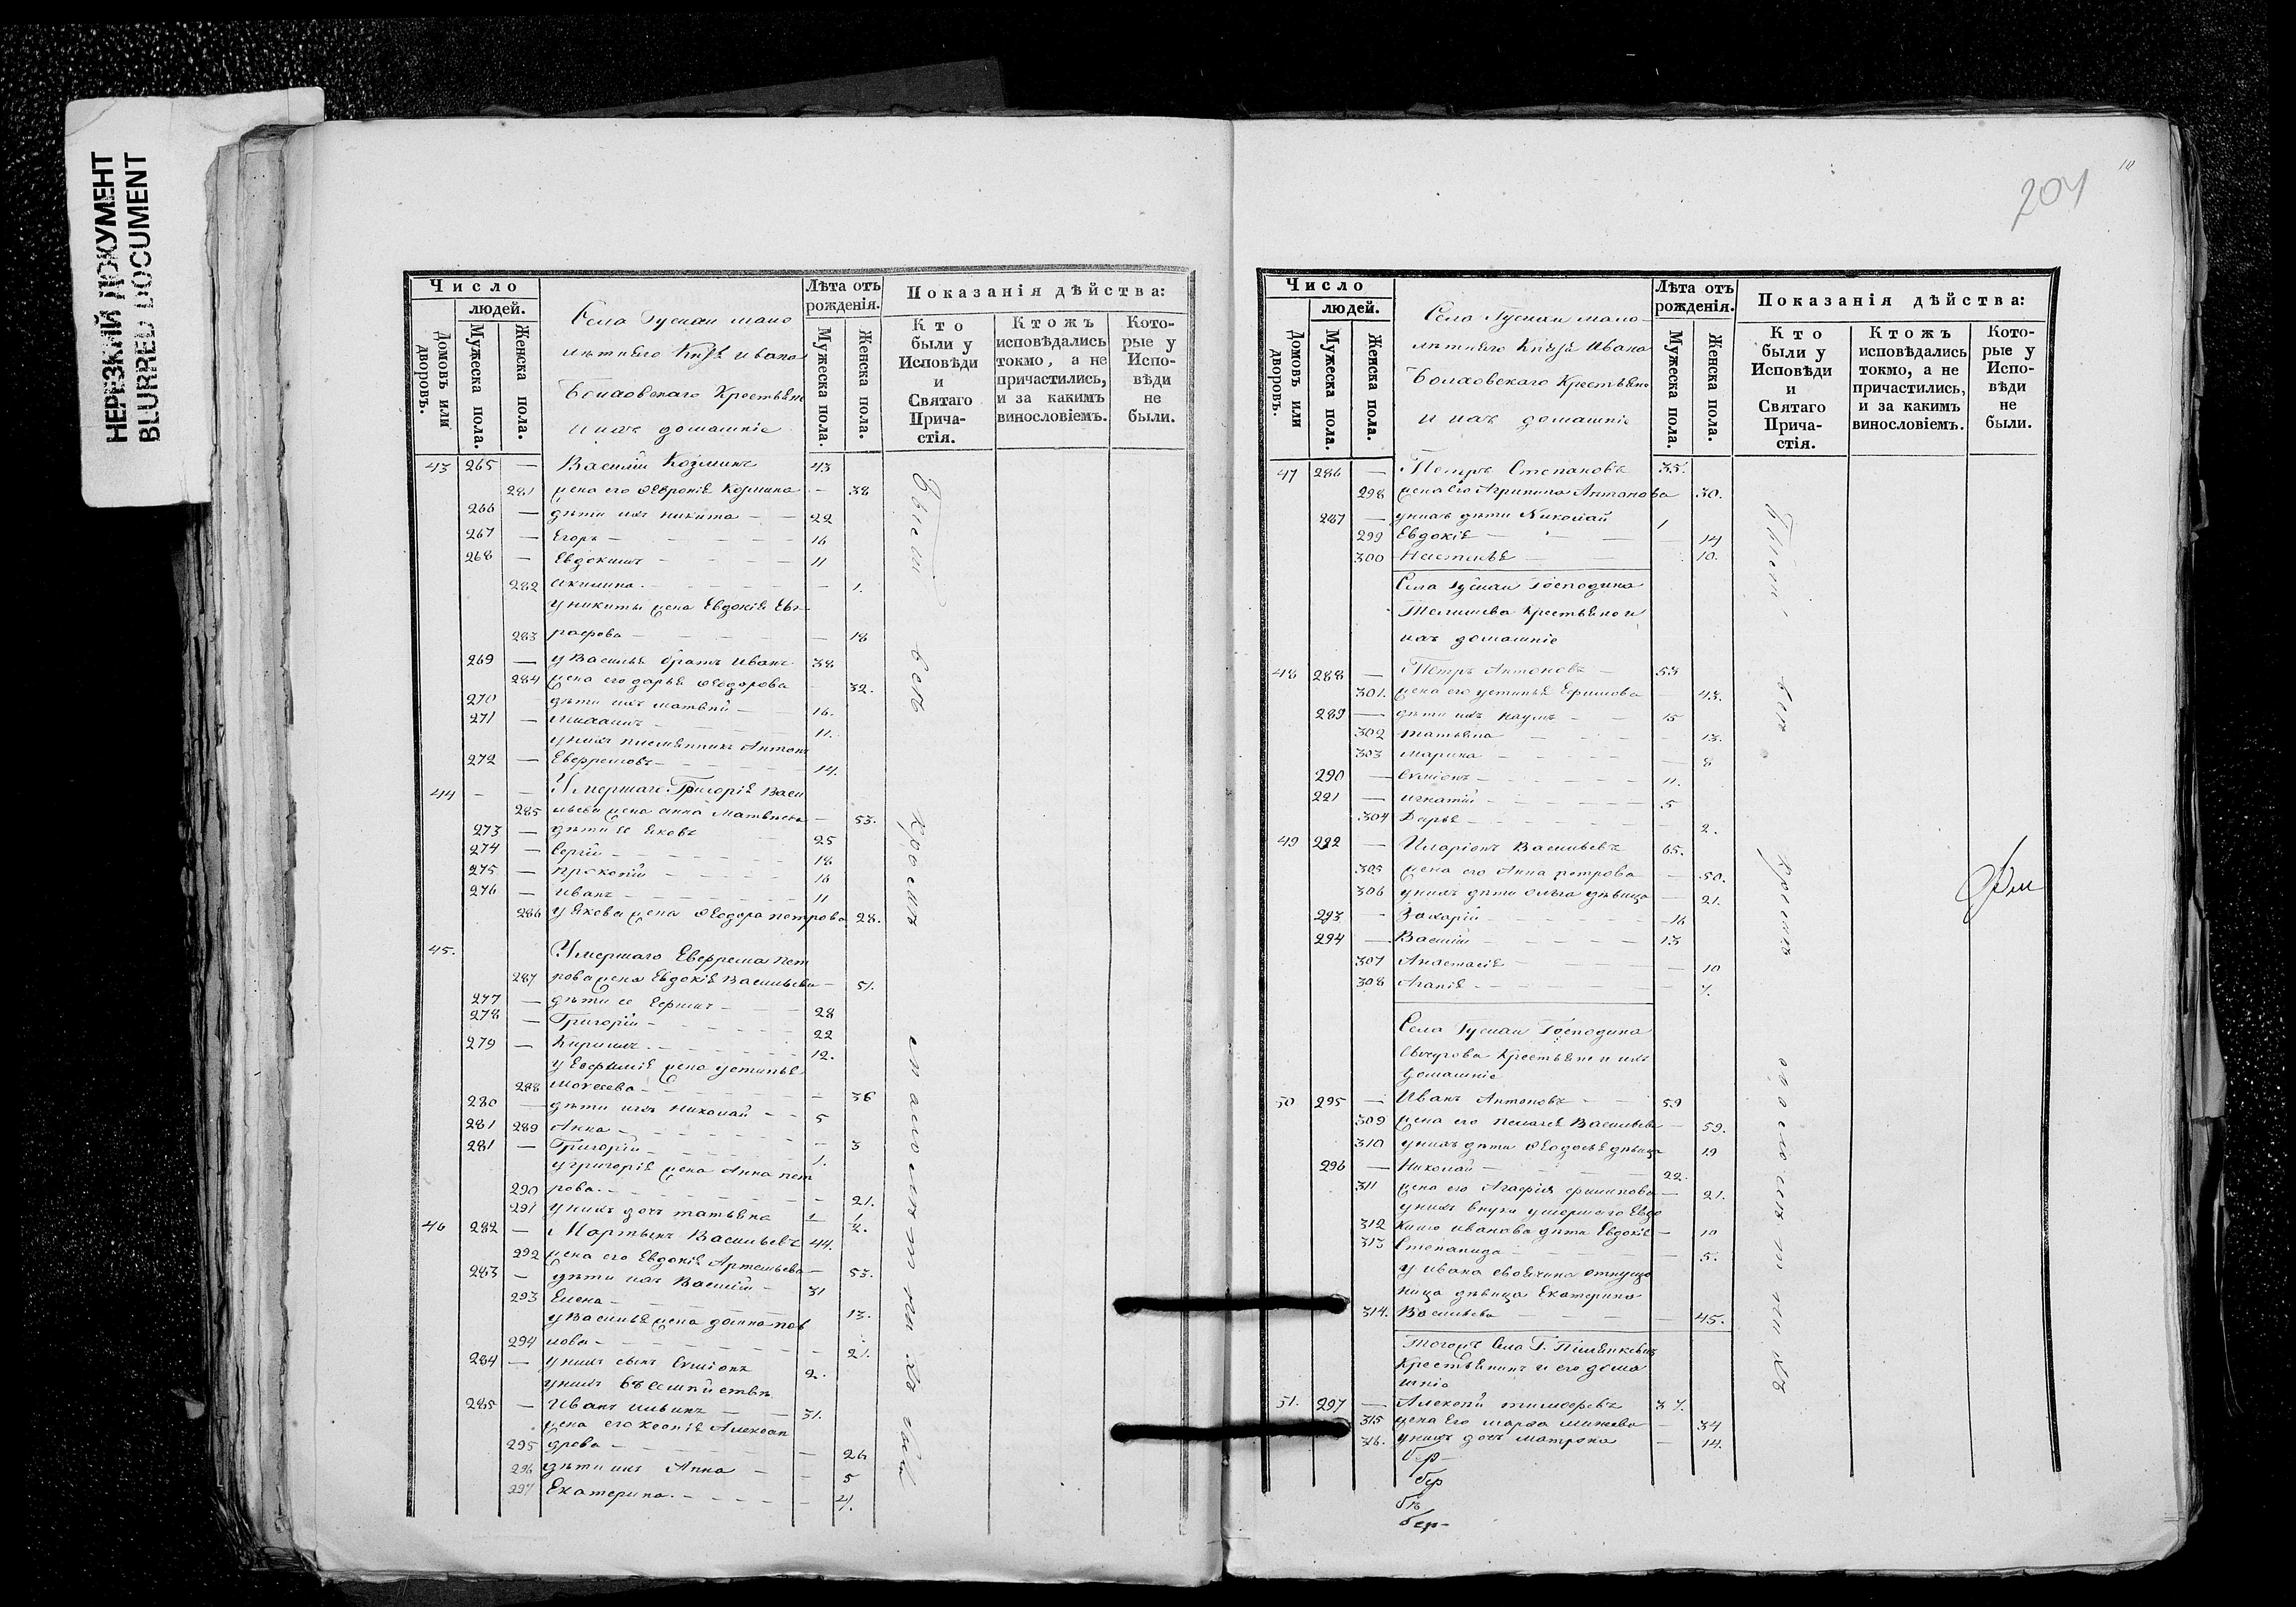 НЕРЕЗКИЙ ДОКУМЕНТ
BLURRED DOCUMENT
Число
людей.
Домовъ или дворовъ.
Мужеска пола.
Женска пола.
Села Гускаи мало
лѣтнего Кнѧзѧ Ивана
Крестьѧне
и ихъ домашніе
Лѣта отъ рожденія.
Мужеска пола.
Женска пола.
Показанія дѣйства:
Кто были у Исповѣди и Святаго Прича-стія.
Ктожъ исповѣдались токмо, а не причастились, и за какимъ винословіемъ.
Кото-рые у Испо-вѣди не были.
43 265 — Василій Козминъ 43
281 жена его Февронія Козмина — 38
266 — дѣти ихъ Никита — — 22
267 — Егоръ — 16
268 — Евдокимъ — 11
282 Акилина — 1.
у Никиты жена Евдокія Ев
283 графова — 18
269 — у Василья братъ Иванъ 38
284 жена его Дарья Феодорова — 32.
270 — дѣти ихъ Матвѣй — 16.
271 — Михаилъ — 11.
у нихъ племянникъ Антонъ
272 — Евфремовъ — 14.
44 — — Умершаго Григорія Васи
285 льева жена Анна Матвѣева — 53.
273 — дѣти ее Яковъ 25
274 — Сергій — 18
275 — Прокопій — 16
276 — Иванъ — 11
286 у Якова жена Феодора Петрова 28.
45. Умершаго Евфрема Пет
287 рова жена Евдокія Васильева — 51.
277 — дѣти ее Ефимъ — 28
278 — Григорій — 22
279 — Кирилъ — 12.
у Евфимія жена Устинья
288 Моѵсеева — 36
280 — дѣти ихъ Николай — — 5
281 289 Анна — 3
281 — Григорій — 1.
у Григорія жена Анна Пет
290 рова — 21.
291 у нихъ дочь Татьяна
46 282 — Мартынъ Васильевъ 44.
292 жена его Евдокія Артемьева — 53.
283 — дѣти ихъ Василій — 31
293 Елена — 13.
у Василья жена Домна Пав
294 лова — 21.
284 — у нихъ сынъ Сѵміонъ 2.
у нихъ въ семействѣ
285 — Иванъ Ильинъ — 31.
жена его Ксенія Алексан
295 дрова — 26
296 дѣти ихъ Анна — 5
297 Екатерина — 4.
Были всѣ кромѣ малолѣтнихъ
204
Число
людей.
Домовъ или дворовъ.
Мужеска пола.
Женска пола.
Села Гускаи мало
лѣтнего Князя Ивана
Крестьяне
и ихъ домашніе
Лѣта отъ рожденія.
Мужеска пола.
Женска пола.
Показанія дѣйства:
Кто были у Исповѣди и Святаго Прича-стія.
Ктожъ исповѣдались токмо, а не причастились, и за какимъ винословіемъ.
Кото-рые у Испо-вѣди не были.
47 286 — Петръ Степановъ 35.
298 жена его Агрипина Антонова 30.
287 — у нихъ дѣти Николай 1
299 Евдокія — 14
300 Наталья — 10.
Села Гускаи Господина
Крестьяне и
ихъ домашніе
48 288 — Петръ Антоновъ — 53
301. жена его Устинья Ефимова — 43.
289 — дѣти ихъ Наумъ — 15
302 Татьяна — 13.
303 Марина — 8
290 — Сѵміонъ — 11.
291 — Игнатій — 5
304 Дарья — 2.
49 292 — Иларіонъ Васильевъ 65.
305 жена его Анна Петрова — 50.
306 у нихъ дѣти Ольга дѣвица — 21.
293 — Захарій — 16
294 — Василій — 13
307 Анастасія — 10
308 Агапія — 7.
Села Гускаи Господина
Крестьяне и ихъ
домашніе
50 295 — Иванъ Антоновъ — 59
309 жена его Пелагея Васильева — 59.
310 у нихъ дѣти Феодосья дѣвица 19
296 — Николай — 22.
311 жена его Агафія Филипова — 21.
у нихъ внуки умершего Евдо
312 кима Иванова дѣти Евдокія — 10
313 Степанида — 5.
у Ивана своячина отпущо
ница дѣвица Екатерина
314. Васильева — 45.
Тогожъ Села Г.
Крестьянинъ и его дома
шніе
51. 297 — Алексѣй Тимофеевъ 37.
315 жена его Марфа — 34
316. у нихъ дочь Матрона — 14.
Были всѣ кромѣ малолѣтнихъ